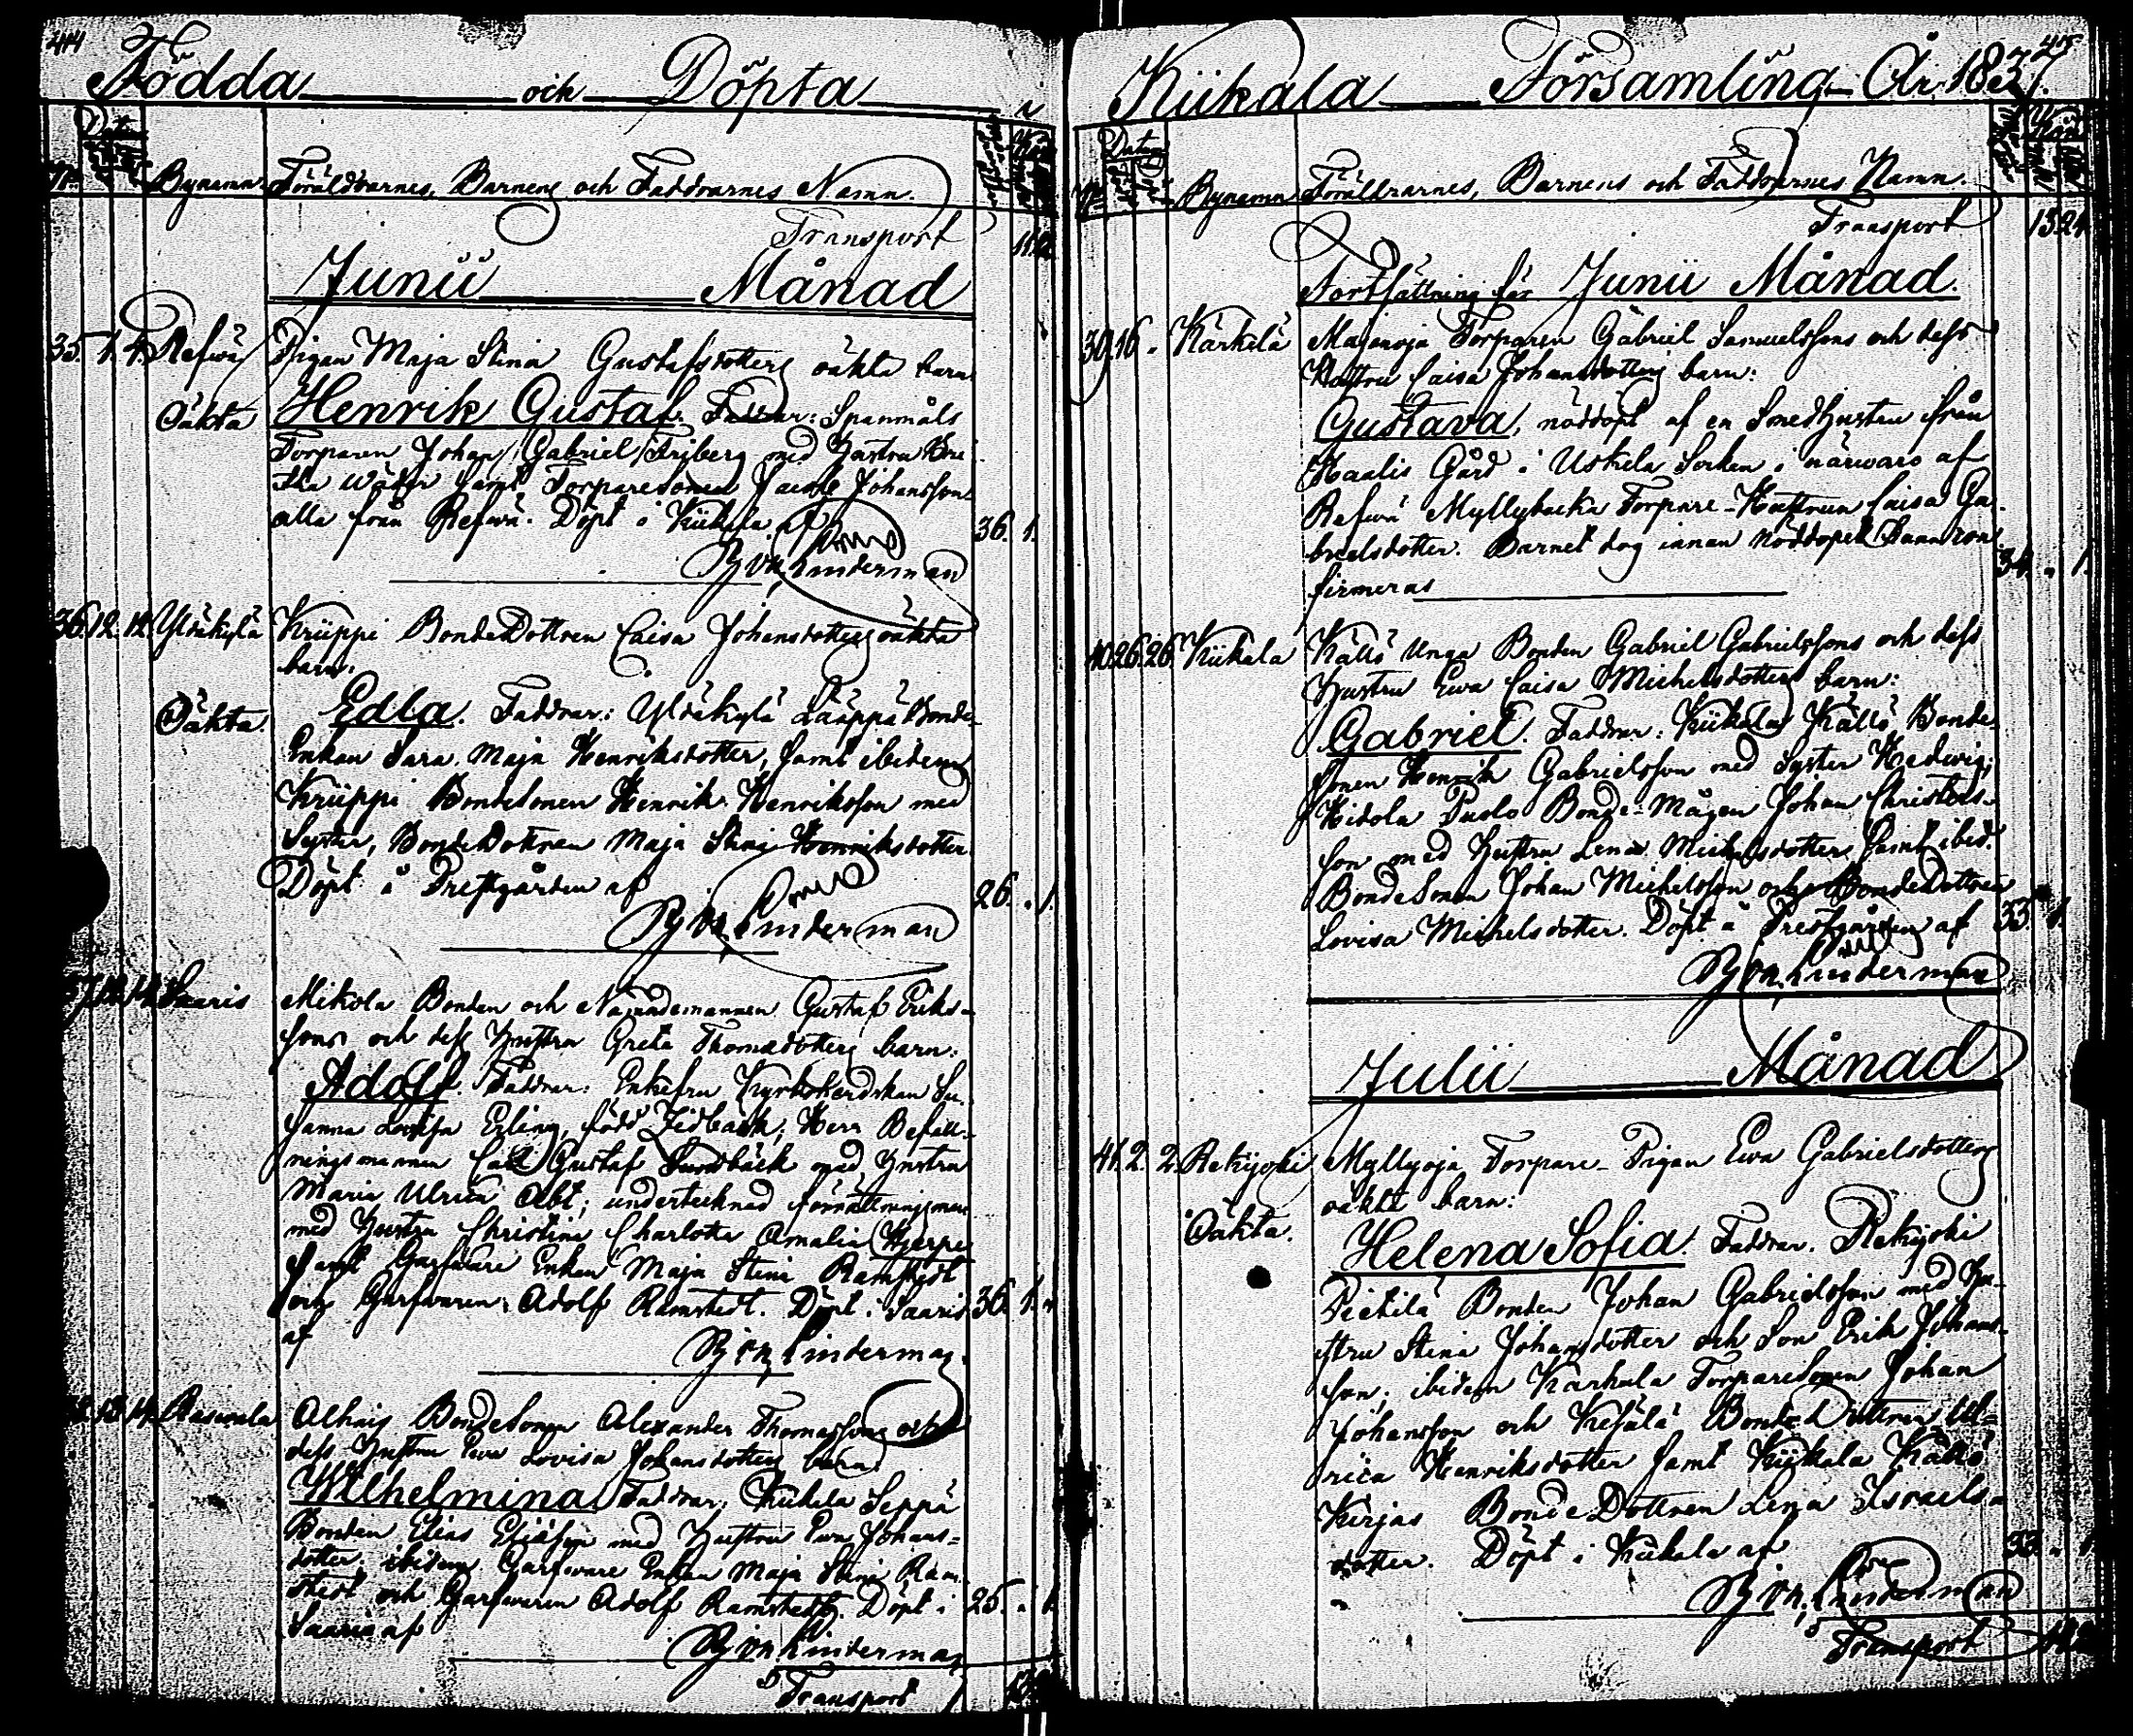 44
Födda och Döpta
Datum
Bynamn Föräldrarnes, Barnens och Faddrarnes Namn.
Transport
Junii Månad
35. 1. 4. Refwä Pigan Maja Stina Gustafsdotters oäkta barn
Oäkta Henrik Gustaf. Faddrar: Spanmåls
Torparen Johan Gabriel Friberg med Hustru
samt Torparesonen Johansson
alla från Refwä. Döpt i Kiikala af 36. 1.
Lindermann
36. 12. 12. Yltäkylä Kriippi BondeDottren Caisa Johansdotters oäkta
barn:
Oäkta. Edla. Faddrar: Yltäkylä Bonde-
Enkan Sara Maja Henriksdotter, samt ibidem
Kriippi BondeSonen Henrik Henriksson med
Syster, BondeDottren Maja Stina Henriksdotter.
Döpt å Prestgården af 26. 1.
Linderman
Saaris Mikola Bonden och Nämndemannen Gustaf Eriks-
sons och dess Hustru Greta Thomasdotters barn:
Adolf. Faddrar: Enkefru Kyrkoherdskan Su-
sanna Lovisa Ezling, född Herr Befall-
ningsmannen Carl Gustaf med Hustru
Maria Ulrica Abt; undertecknad förrättningsman
med Hustru Christina Charlotta Amalia Hjerpe
samt Garfware Enkan Maja Stina Ramstedt
och Garfwaren Adolf Ramstedt. Döpt i Saaris 36. 1.
af
Linderman
13. 14. Raswala Alhais BondeSonen Alexander Thomassons och
dess Hustru Ewa Lovisa Johansdotters barn:
Wilhelmina. Faddrar: Kiikala Seppä
Bonden Elias Eliasson med Hustru Ewa Johans-
dotter. ibidem Garfware Enkan Maja Stina Ram-
stedt och Garfwaren Adolf Ramstedt. Döpt i 25. 1.
Saaris af
Linderman
Transport
45
Kiikala Församling År 1837.
Datum
Bynamn Föräldrarnes, Barnens och Faddrarnes Namn.
Transport 13 21
Fortsättning för Junii Månad.
39. 16. Kärkelä Torparen Gabriel Samuelssons och dess
Hustru Caisa Johansdotters barn:
Gustava, nöddöpt af en Smedhustru från
Haalis Gård i Uskela Socken i närwaro af
Refwä Myllybacka Torpare-Hustrun Caisa Ga-
brielsdotter. Barnet dog innan nöddopet kunnat con-
firmeras 34. 1.
40. 26. 26. Kiikala Källö Unga Bonden Gabriel Gabrielssons och dess
Hustru Ewa Caisa Michelsdotters barn:
Gabriel. Faddrar: Kiikala Källö Bonde-
Sonen Henrik Gabrielsson med Syster Hedwig;
Hidola Bonde-Mågen Johan Christers-
son med Hustru Lena Michelsdotter samt ibid.
BondeSonen Johan Michelsson och BondeDottren
Lovisa Michelsdotter. Döpt å Prestgården af 33. 1.
Linderman
Julii Månad
41. 2. 2. Rekijoki Myllyoja Torpare-Pigan Ewa Gabrielsdotters
oäkta barn:
Oäkta. Helena Sofia. Faddrar. Rekijoki
Pietilä Bonden Johan Gabrielsson med Hu-
stru Stina Johansdotter och Son Erik Johans-
son; ibidem Karhula Torparesonen Johan
Johansson och BondeDottren Ul-
rica Henriksdotter samt Kiikala Källö
Kirjas BondeDottren Lena Israels-
dotter. Döpt i Kiikala af 33. 1.
Linderman
Transport